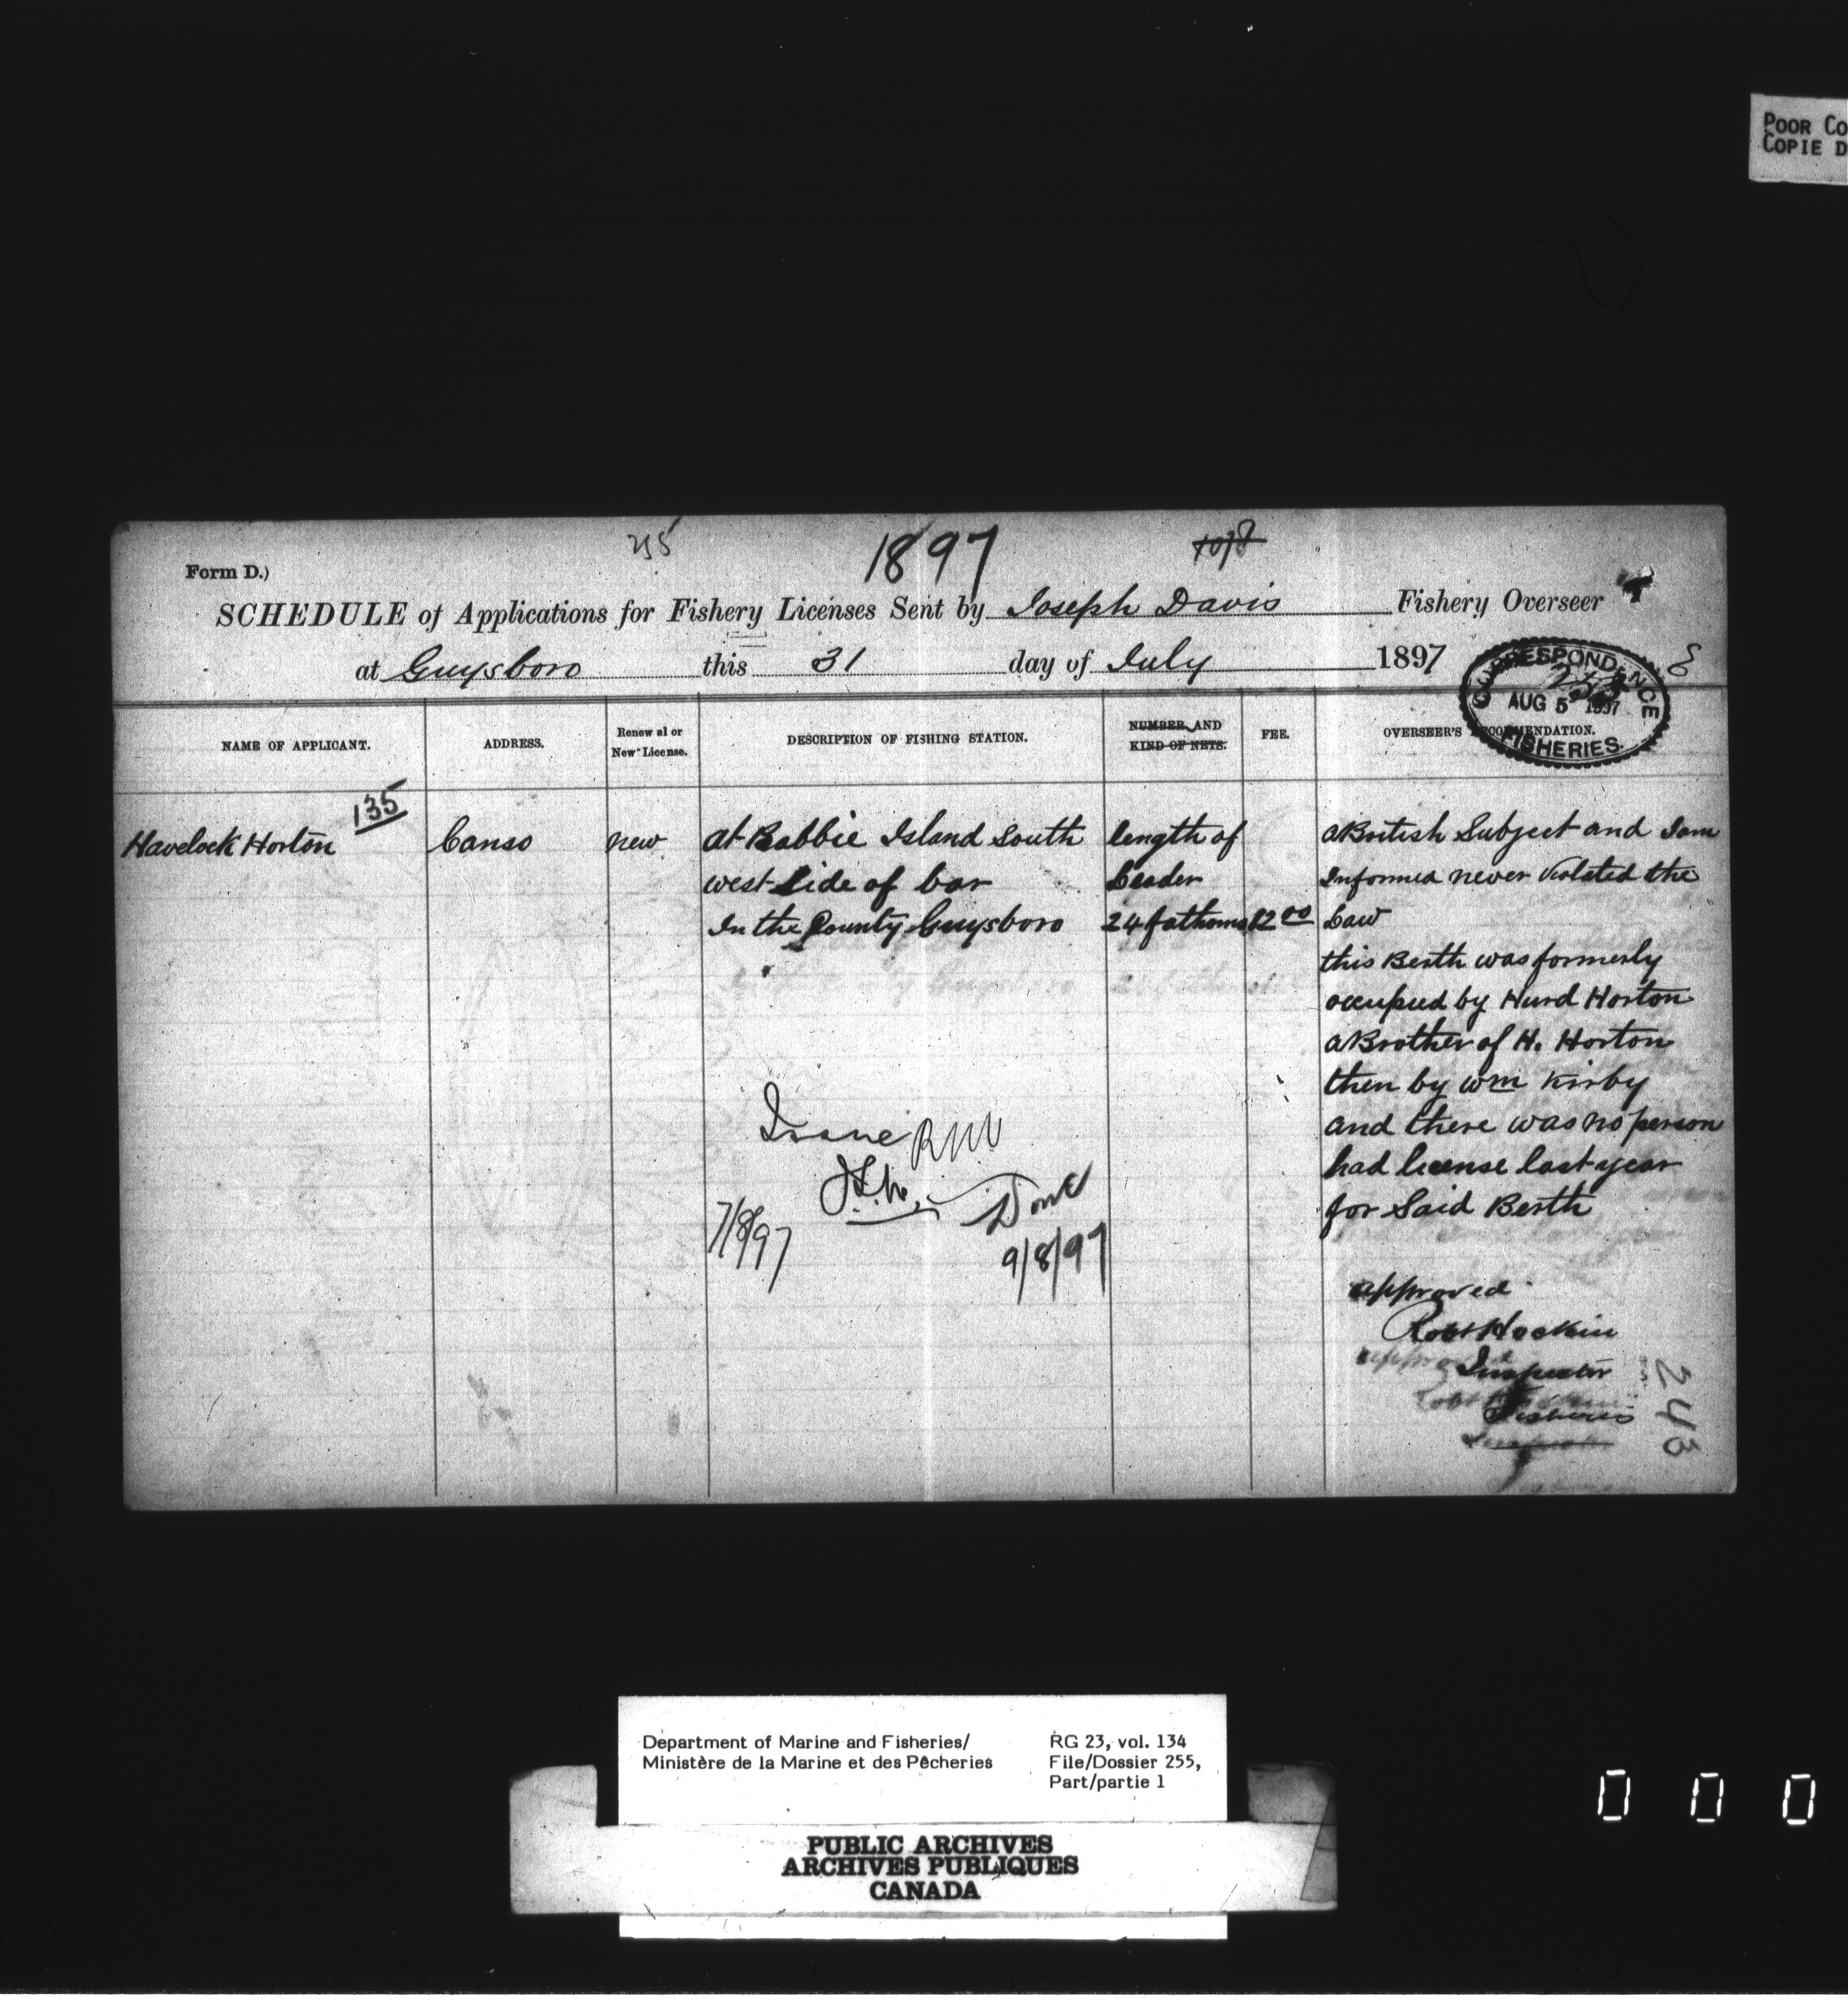 POOR CO
COPIE D
1897
Form D.)
SCHEDULE of Applications for Fishery Licenses Sent by Joseph Davis Fishery Overseer
at Guysboro this 31 day of July 1897
CORRESPONDENCE
AUG 5 1897
FISHERIES.
NAME OF APPLICANT. ADDRESS. Renewal or New License. DESCRIPTION OF FISHING STATION. NUMBER AND KIND OF NETS. FEE. OVERSEER'S RECOMMENDATION.
135
Havelock Horton Canso new at Babbie Island South length of a British Subject and I am
west Side of bar Leader Informed never Violated the
In the County Guysboro 24 fathoms 12 00 Law
this Berth was formerly
occupied by Hurd Horton
a Brother of H. Horton
then by Wm Kirby
and there was no person
had license last year
for Said Berth
Issue
7/8/97
Done
9/8/97
approved
Robt Hockin
Inspector
Fisheries
243
Department of Marine and Fisheries/ RG 23, vol. 134
Ministère de la Marine et des Pêcheries File/Dossier 255,
Part/partie 1
PUBLIC ARCHIVES
ARCHIVES PUBLIQUES
CANADA
0 0 0